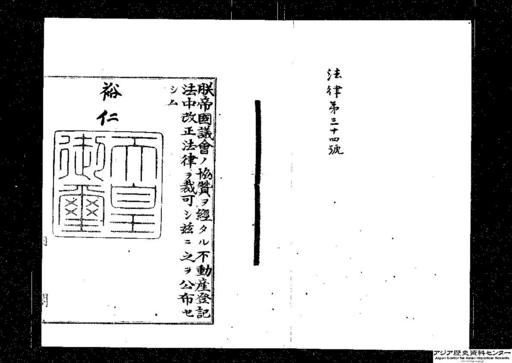 法律第三十四號
朕帝國議會ノ協贊ヲ經タル不動產登記
法中改正法律ヲ裁可シ玆ニ之ヲ公布セ
シム
裕仁
天皇
御璽
アジア歴史資料センター
Japan Center for Asian Historical Records